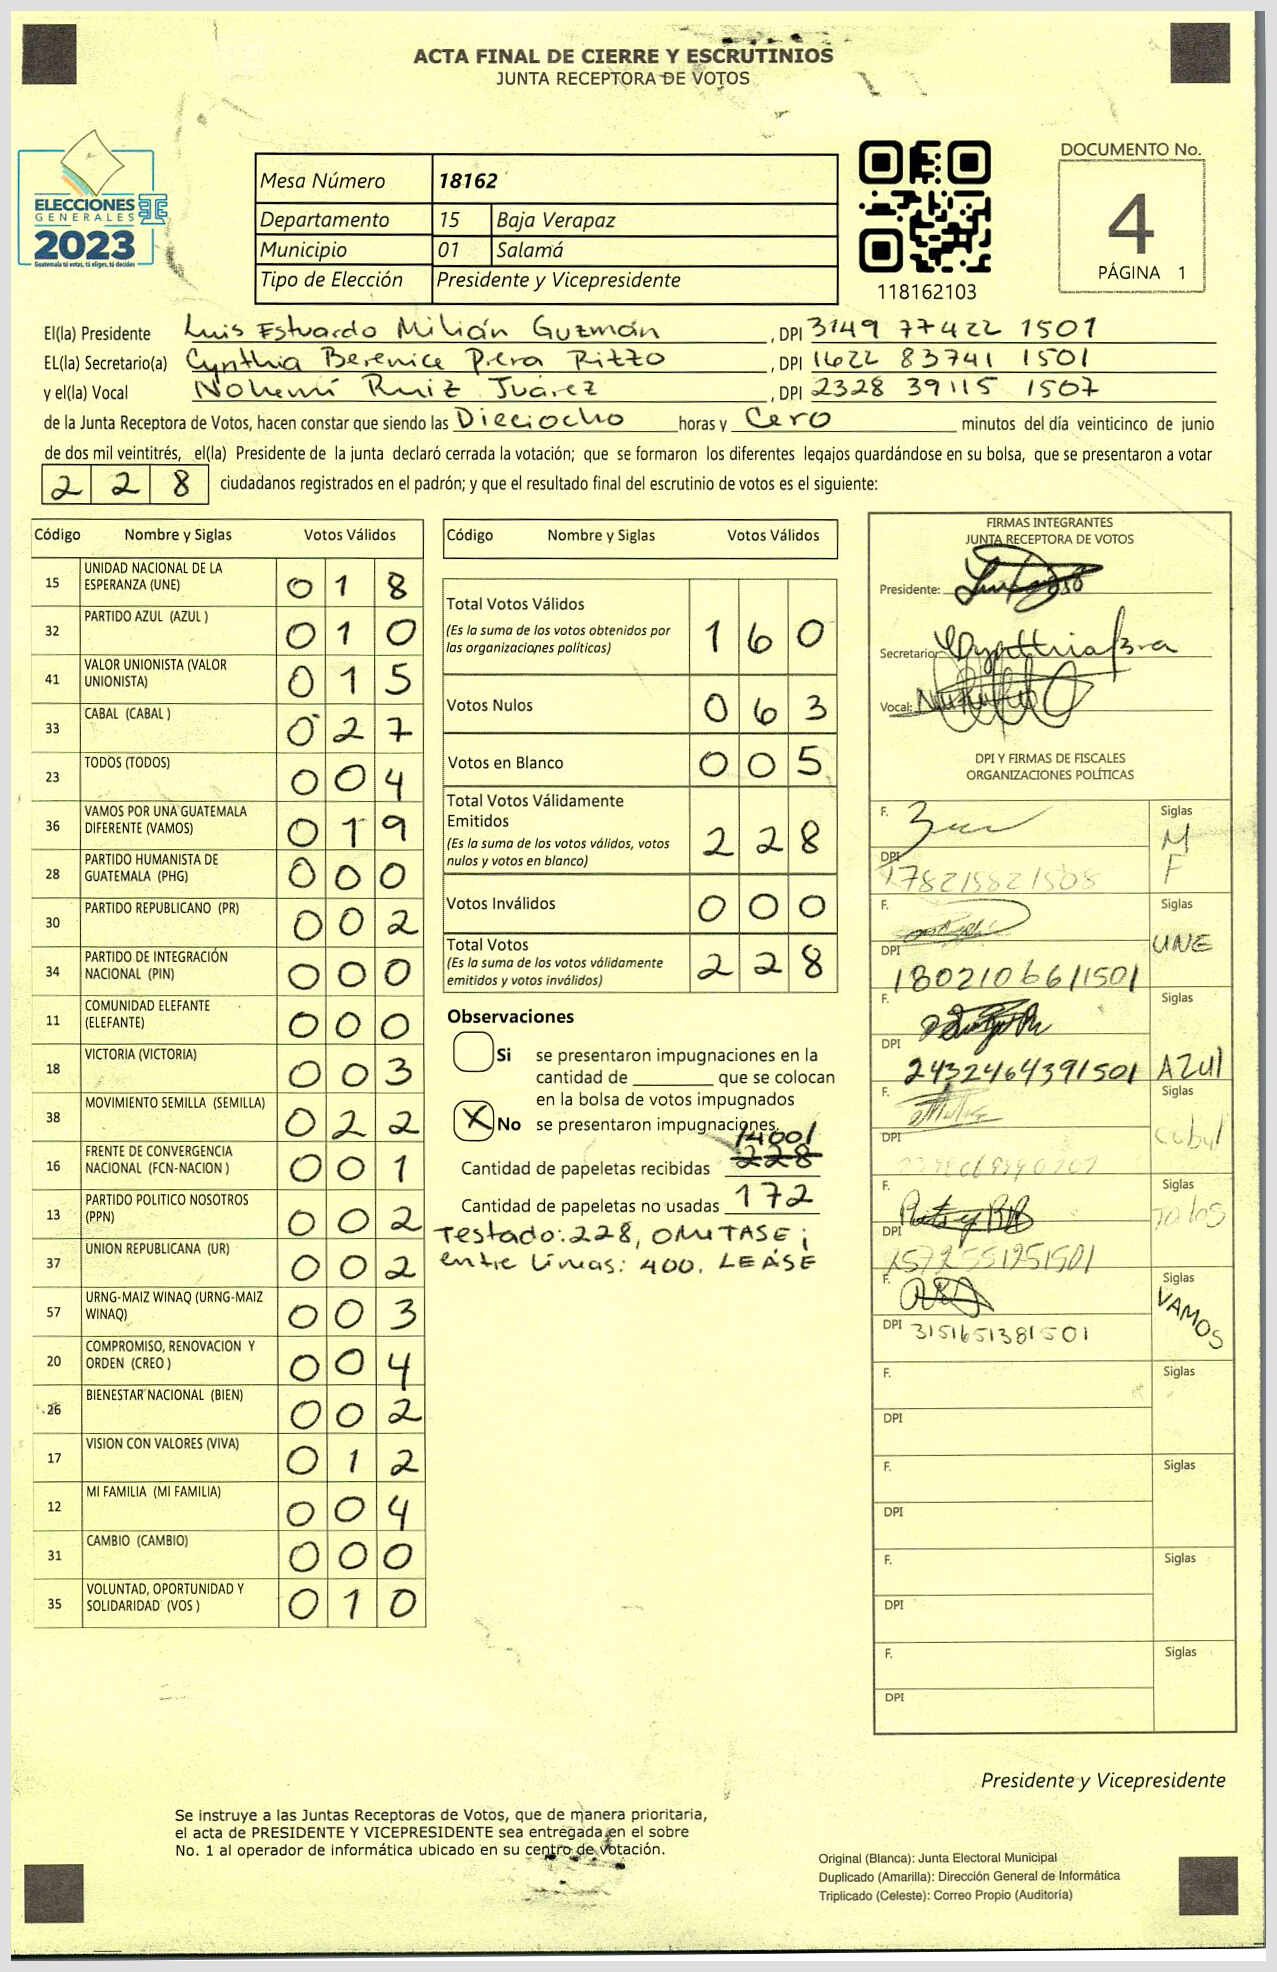 ACTA FINAL DE CIERRE Y ESCRUTINIOS
JUNTA RECEPTORA DE VOTOS
ELECCIONES
GENERALES
2023
Guatemala tú votas, tú eliges, tú decides
Mesa Número 18162
Departamento 15 Baja Verapaz
Municipio 01 Salamá
Tipo de Elección Presidente y Vicepresidente
118162103
DOCUMENTO No.
4
PÁGINA 1
El(la) Presidente Luis Estuardo Milián Guzmán , DPI 3149 77422 1501
EL(la) Secretario(a) Cynthia Berenice Rizzo , DPI 1622 83741 1501
y el(la) Vocal Nohemí Ruiz Juárez , DPI 2328 39115 1507
de la Junta Receptora de Votos, hacen constar que siendo las Dieciocho horas y Cero minutos del día veinticinco de junio
de dos mil veintitrés, el(la) Presidente de la junta declaró cerrada la votación; que se formaron los diferentes legajos guardándose en su bolsa, que se presentaron a votar
2 2 8 ciudadanos registrados en el padrón; y que el resultado final del escrutinio de votos es el siguiente:
Código Nombre y Siglas Votos Válidos
15 UNIDAD NACIONAL DE LA
ESPERANZA (UNE) 0 1 8
32 PARTIDO AZUL (AZUL ) 0 1 0
41 VALOR UNIONISTA (VALOR
UNIONISTA) 0 1 5
33 CABAL (CABAL ) 0 2 7
23 TODOS (TODOS) 0 0 4
36 VAMOS POR UNA GUATEMALA
DIFERENTE (VAMOS) 0 1 9
28 PARTIDO HUMANISTA DE
GUATEMALA (PHG) 0 0 0
30 PARTIDO REPUBLICANO (PR) 0 0 2
34 PARTIDO DE INTEGRACIÓN
NACIONAL (PIN) 0 0 0
11 COMUNIDAD ELEFANTE
(ELEFANTE) 0 0 0
18 VICTORIA (VICTORIA) 0 0 3
38 MOVIMIENTO SEMILLA (SEMILLA) 0 2 2
16 FRENTE DE CONVERGENCIA
NACIONAL (FCN-NACION ) 0 0 1
13 PARTIDO POLITICO NOSOTROS
(PPN) 0 0 2
37 UNION REPUBLICANA (UR) 0 0 2
57 URNG-MAIZ WINAQ (URNG-MAIZ
WINAQ) 0 0 3
20 COMPROMISO, RENOVACION Y
ORDEN (CREO ) 0 0 4
26 BIENESTAR NACIONAL (BIEN) 0 0 2
17 VISION CON VALORES (VIVA) 0 1 2
12 MI FAMILIA (MI FAMILIA) 0 0 4
31 CAMBIO (CAMBIO) 0 0 0
35 VOLUNTAD, OPORTUNIDAD Y
SOLIDARIDAD (VOS ) 0 1 0
Código Nombre y Siglas Votos Válidos
Total Votos Válidos
(Es la suma de los votos obtenidos por
las organizaciones políticas) 1 6 0
Votos Nulos 0 6 3
Votos en Blanco 0 0 5
Total Votos Válidamente
Emitidos
(Es la suma de los votos válidos, votos
nulos y votos en blanco) 2 2 8
Votos Inválidos 0 0 0
Total Votos
(Es la suma de los votos válidamente
emitidos y votos inválidos) 2 2 8
Observaciones
Si se presentaron impugnaciones en la
cantidad de ________ que se colocan
en la bolsa de votos impugnados
X No se presentaron impugnaciones.
/400/
Cantidad de papeletas recibidas 228
Cantidad de papeletas no usadas 172
Testado: 228, OMITASE;
entre líneas: 400. LEASE
FIRMAS INTEGRANTES
JUNTA RECEPTORA DE VOTOS
Presidente:
Secretario:
Vocal:
DPI Y FIRMAS DE FISCALES
ORGANIZACIONES POLÍTICAS
F. Siglas
M
F
DPI
F. Siglas
UNE
DPI
1802106611501
F. Siglas
DPI
2432464391501 AZUl
F. Siglas
DPI
Cabal
F. Siglas
Todos
DPI
2572551251501
F. Siglas
VAMOS
DPI 3151651381501
F. Siglas
DPI
F. Siglas
DPI
F. Siglas
DPI
F. Siglas
DPI
Presidente y Vicepresidente
Se instruye a las Juntas Receptoras de Votos, que de manera prioritaria,
el acta de PRESIDENTE Y VICEPRESIDENTE sea entregada en el sobre
No. 1 al operador de informática ubicado en su centro de votación.
Original (Blanca): Junta Electoral Municipal
Duplicado (Amarilla): Dirección General de Informática
Triplicado (Celeste): Correo Propio (Auditoría)